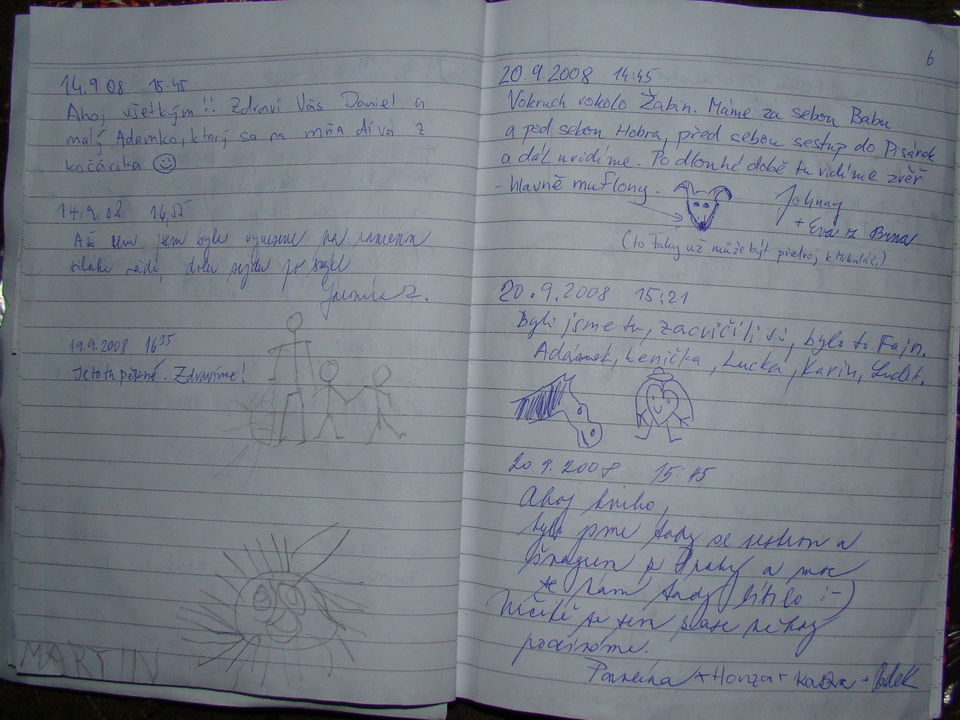 14.9 08 15:45
Ahoj všetkým!! Zdraví Vás Daniel a
malý Adámko, ktorý sa na mňa díva z
kočárika
14.9.08
Až sem jsem byla vynesena na ramenou
19.9.2008 16 35
Je to tu pěkné. Zdravíme!
MARTIN
6
20.9.2008 14:45
Vokruch vokolo Žabin. Máme za sebou Babu
a pod sebou Hobra, před sebou sestup do Pisárek
a dál uvidíme. Po dlouhé době tu vidíme zvěř
- hlavně muflony.
Johnny
+ Eva z Brna
(to taky už může být předvoj k Mikuláši)
20.9.2008 15:21
Byli jsme tu, zacvičili si, bylo to fajn.
Adámek, Lenička, Lucka, Karin, Luděk.
20 9.2008 15:45
Ahoj kniho,
byli jsme tady se sestrou a
švagrem z Prahy a moc
se nám tady líbilo :-)
Určitě se sem zase někdy
podíváme.
+ Honza + + Radek